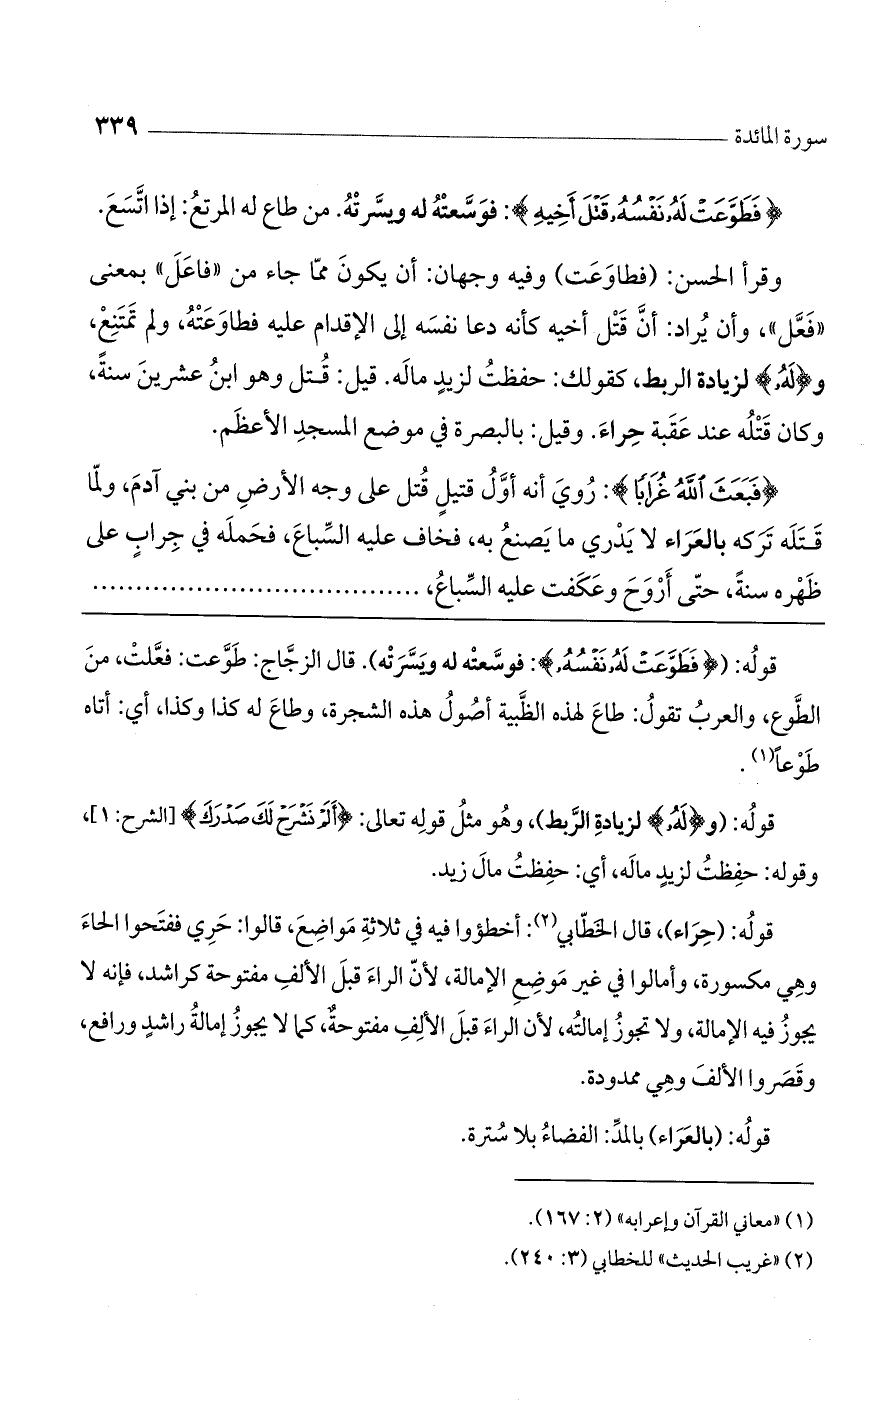 سورة المائدة ٣٣٩
﴿فَطَوَّعَتْ لَهُۥ نَفْسُهُۥ قَتْلَ أَخِيهِ﴾: فوَسَّعتْهُ له ويسَّرتْهُ. من طاع له المرتعُ: إذا اتَّسَعَ.
وقرأ الحسن: (فطاوَعَت) وفيه وجهان: أن يكونَ ممّا جاء من «فاعَلَ» بمعنى
«فَعَّل»، وأن يُراد: أنَّ قَتْل أخيه كأنه دعا نفسَه إلى الإقدام عليه فطاوَعَتْهُ، ولم تمَتَنِعْ،
و﴿لَهُۥ﴾ لزيادة الربط، كقولك: حفظتُ لزيدٍ مالَه. قيل: قُتل وهو ابنُ عشرينَ سنةً،
وكان قَتْلُه عند عَقَبة حِراءَ. وقيل: بالبصرة في موضع المسجدِ الأعظَم.
﴿فَبَعَثَ ٱللَّهُ غُرَابًا﴾: رُويَ أنه أوَّلُ قتيلٍ قُتل على وجه الأرضِ من بني آدمَ، ولمّا
قَتَلَه تَرَكه بالعَرَاء لا يَدْري ما يَصنعُ به، فخاف عليه السِّباعَ، فحَملَه في جِرابٍ على
ظَهْره سنةً، حتّى أَرْوَحَ وعَكَفت عليه السِّباعُ، ....................................
قولُه: (﴿فَطَوَّعَتْ لَهُۥ نَفْسُهُۥ﴾: فوسَّعتْه له ويَسَّرَتْه). قال الزجَّاج: طَوَّعت: فعَّلتْ، منَ
الطَّوع، والعربُ تقولُ: طاعَ لهذه الظَّبية أصُولُ هذه الشجرة، وطاعَ له كذا وكذا، أي: أتاه
طَوْعاً(١).
قولُه: (و﴿لَهُۥ﴾ لزيادةِ الرَّبط)، وهُو مثلُ قولِه تعالى: ﴿أَلَمْ نَشْرَحْ لَكَ صَدْرَكَ﴾ [الشرح: ١]،
وقوله: حفِظتُ لزيدٍ مالَه، أي: حفِظتُ مالَ زيد.
قولُه: (حِرَاء)، قال الخَطّابي(٢): أخطؤوا فيه في ثلاثةِ مَواضِعَ، قالوا: حَرِي ففتَحوا الحاءَ
وهِي مكسورة، وأمالوا في غير مَوضِعِ الإمالة، لأنّ الراءَ قبلَ الألفِ مفتوحة كراشد، فإنه لا
يجوزُ فيه الإمالة، ولا تجوزُ إمالتُه، لأن الراءَ قبلَ الألِفِ مفتوحةٌ، كما لا يجوزُ إمالةُ راشدٍ ورافع،
وقَصَروا الألفَ وهِي ممدودة.
قولُه: (بالعَرَاء) بالمدِّ: الفضاءُ بلا سُترة.
(١) «معاني القرآن وإعرابه» (٢: ١٦٧).
(٢) «غريب الحديث» للخطابي (٣: ٢٤٠).